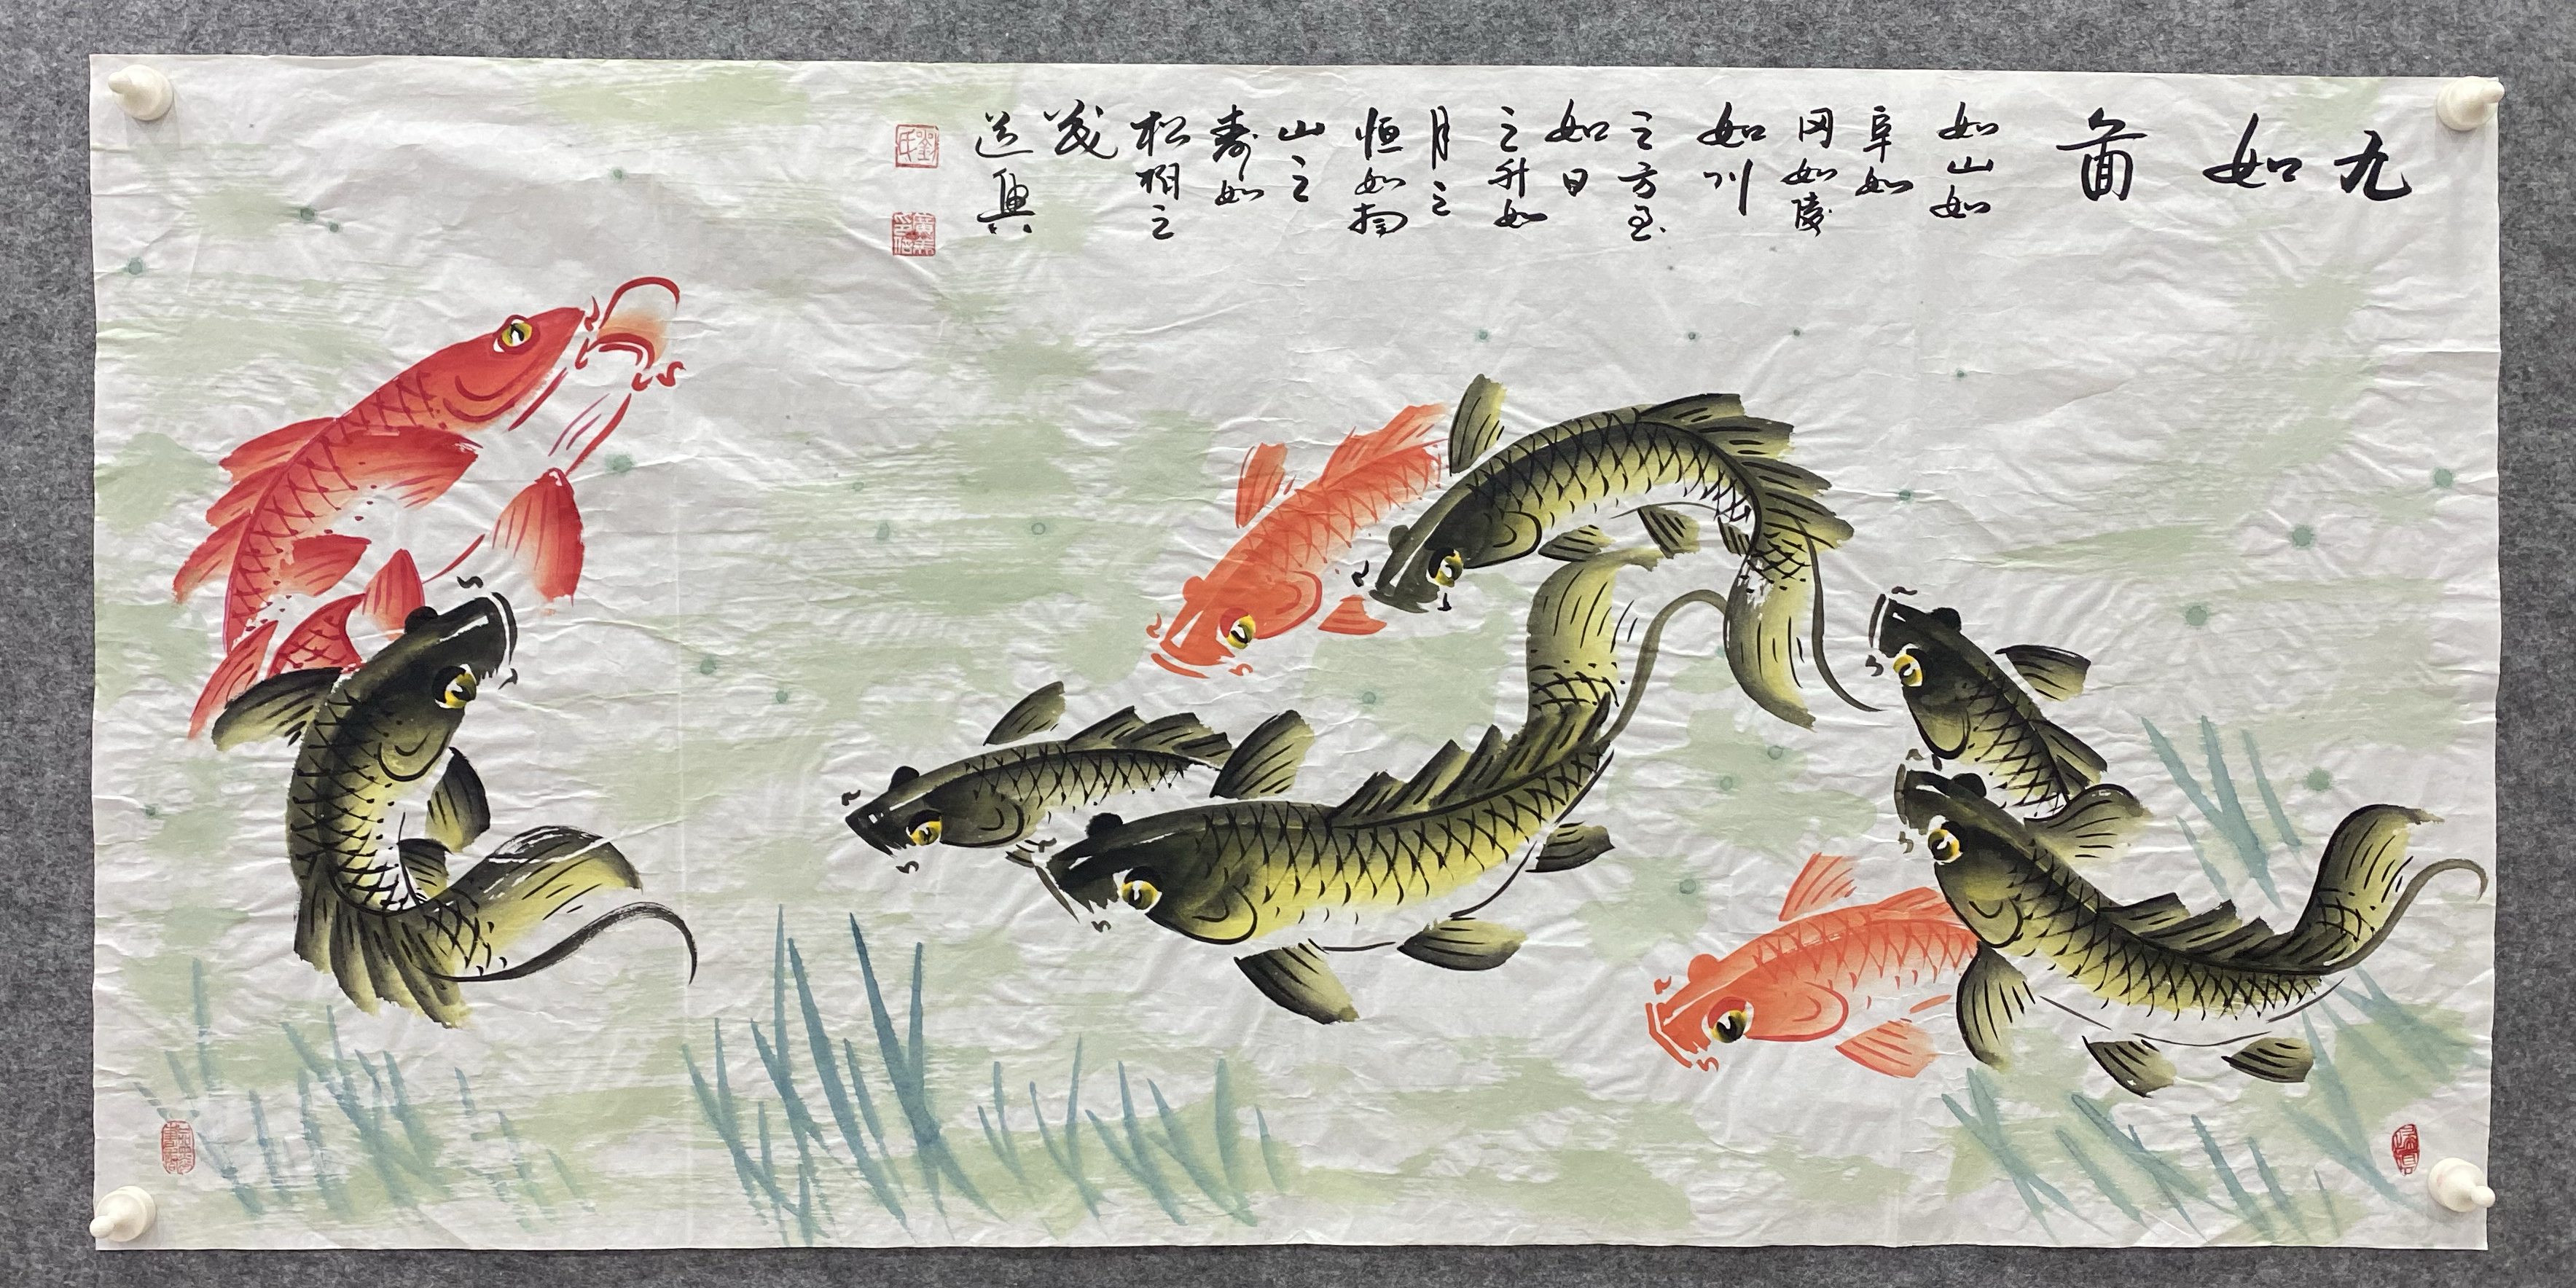 九如圖
如山如
阜如
冈如陵
如川
之方至
如日
之升如
月之
恒如南
山之
寿如
松柏之
茂